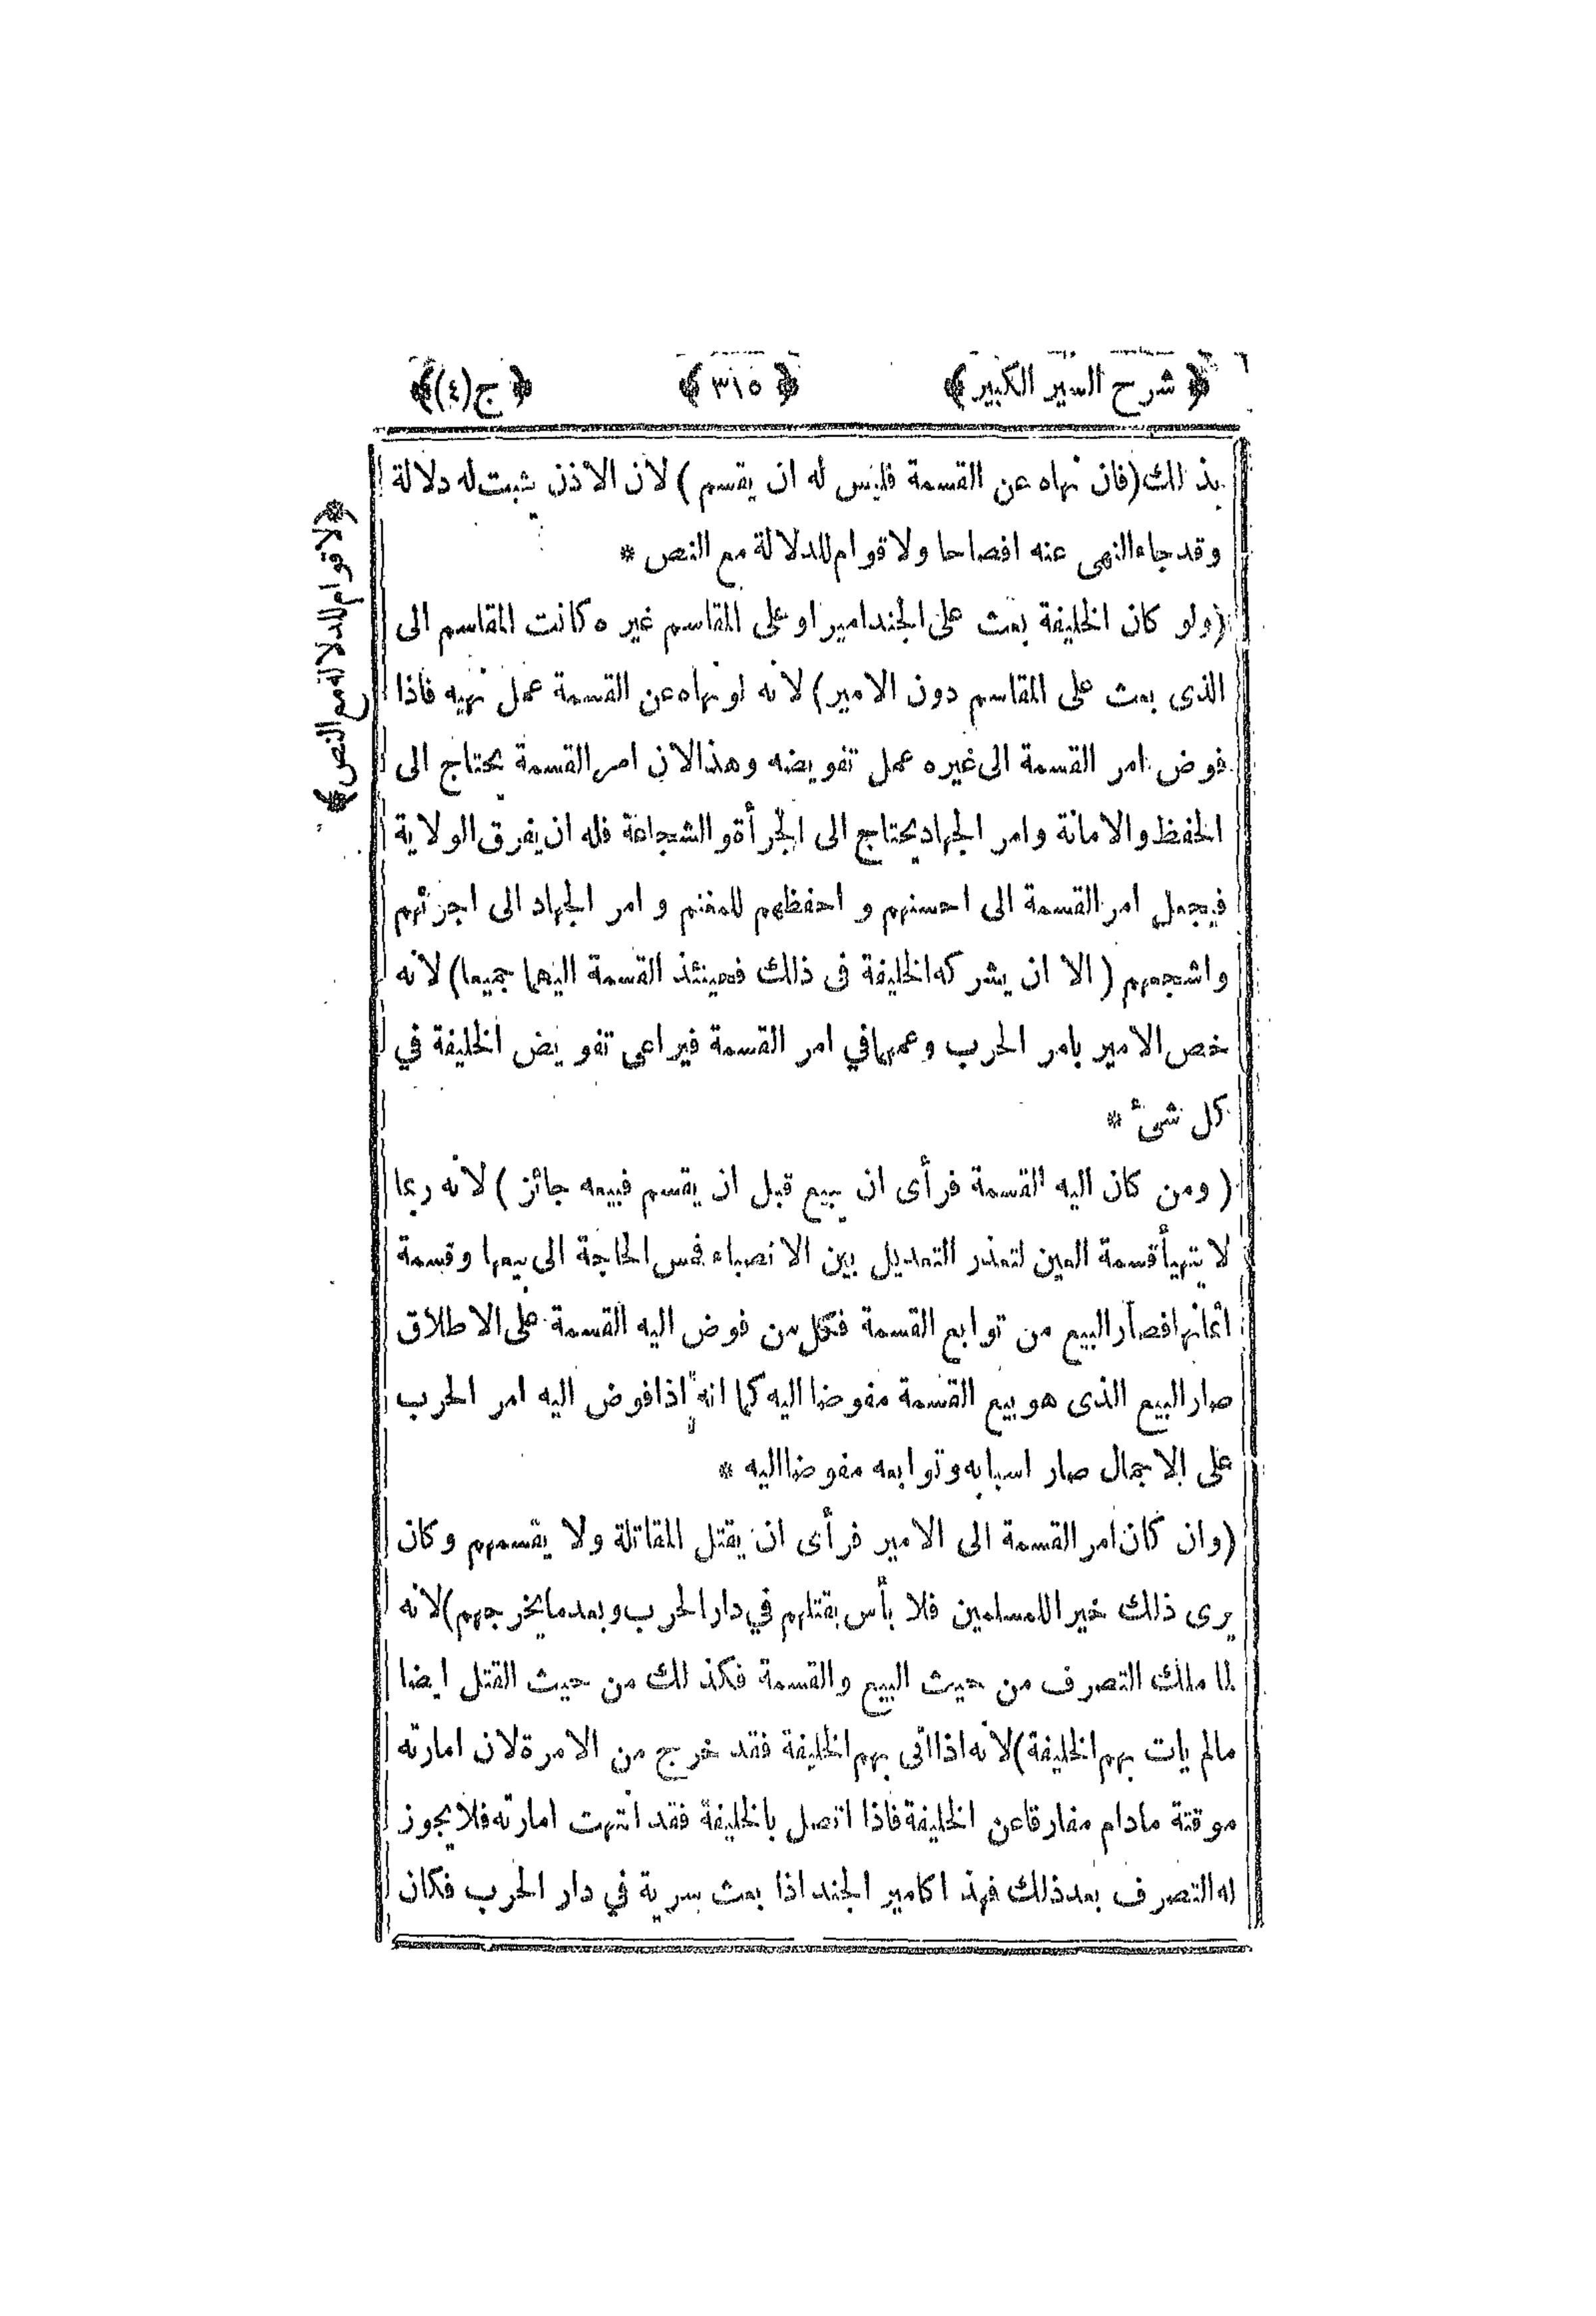 ﴿ شرح السير الكبير ﴾ ﴿ ٣١٥ ﴾ ﴿ ج (٤) ﴾
بذلك (فان نهاه عن القسمة فليس له ان يقسم) لان الاذن يثبت له دلالة
وقد جاء النهى عنه افصاحا ولا قوام للدلالة مع النص *
(ولو كان الخليفة بعث على الجند امير او على المقاسم غيره كانت المقاسم الى
الذى بعث على المقاسم دون الامير) لانه لو نهاه عن القسمة عمل نهيه فاذا
فوض امر القسمة الى غيره عمل تفويضه وهذا لان امر القسمة يحتاج الى
الحفظ والامانة وامر الجهاد يحتاج الى الجرأة والشجاعة فله ان يفرق الولاية
فيجعل امر القسمة الى احسنهم و احفظهم للمغنم و امر الجهاد الى اجرئهم
واشجعهم (الا ان يشركه الخليفة فى ذلك فحينئذ القسمة اليهما جميعا) لانه
خص الامير بامر الحرب وعمهما في امر القسمة فيراعى تفويض الخليفة في
كل شئ *
(ومن كان اليه القسمة فرأى ان يبيع قبل ان يقسم فبيعه جائز) لانه ربما
لا يتهيأ قسمة العين لتعذر التعديل بين الانصباء فمس الحاجة الى بيعها وقسمة
اثمانها فصار البيع من توابع القسمة فكل من فوض اليه القسمة على الاطلاق
صار البيع الذى هو بيع القسمة مفوضا اليه كما انه اذا فوض اليه امر الحرب
على الاجمال صار اسبابه وتوابعه مفوضا اليه *
(وان كان امر القسمة الى الامير فرأى ان يقتل المقاتلة ولا يقسمهم وكان
يرى ذلك خيرا للمسلمين فلا بأس بقتلهم في دار الحرب وبعد ما يخرجهم) لانه
لما ملك التصرف من حيث البيع والقسمة فكذلك من حيث القتل ايضا
مالم يات بهم الخليفة) لانه اذا اتى بهم الخليفة فقد خرج من الامرة لان امارته
موقتة مادام مفارقا عن الخليفة فاذا اتصل بالخليفة فقد انتهت امارته فلا يجوز
له التصرف بعد ذلك فهذا كامير الجند اذا بعث سرية في دار الحرب فكان
﴿ لا قوام للدلالة مع النص ﴾